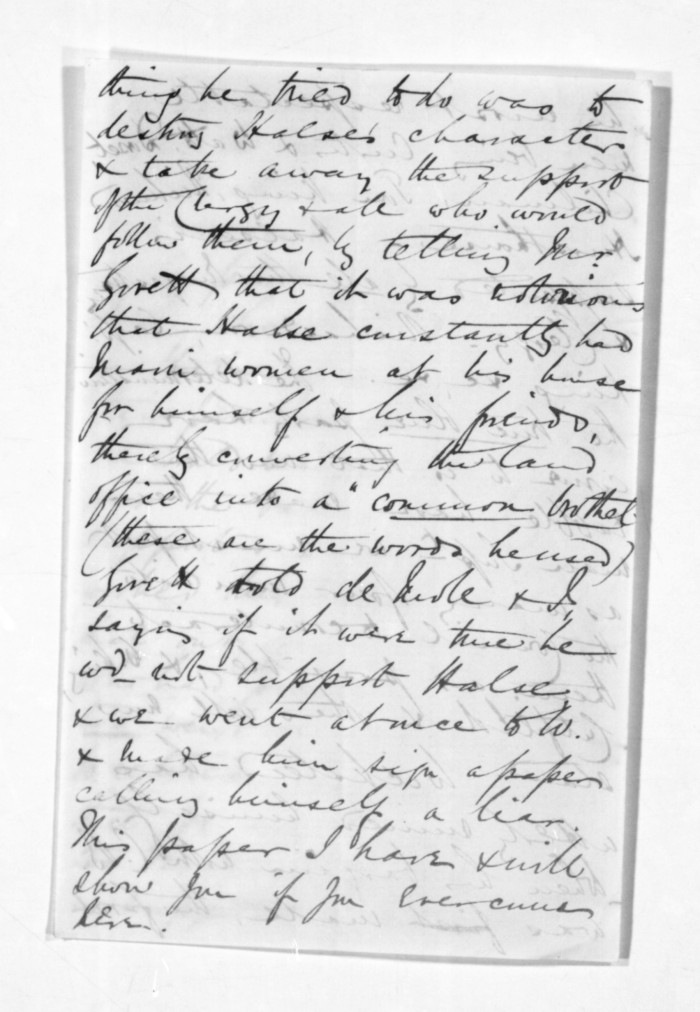 thing he tried to do was to
destroy Halse's character
& take away the support
of the Clergy & all who would
follow them, by telling Mr
Govett that it was notorious
that Halse constantly had
Maori women at his house
for himself & his friends,
thereby converting the land
office into a "common brothel"
(these are the words he used)
Govett told de Mole & I,
saying if it were true he
wd not support Halse
& we went at once to W.
& made him sign a paper
calling himself a liar.
This paper I have & will
show you if you ever come
here.